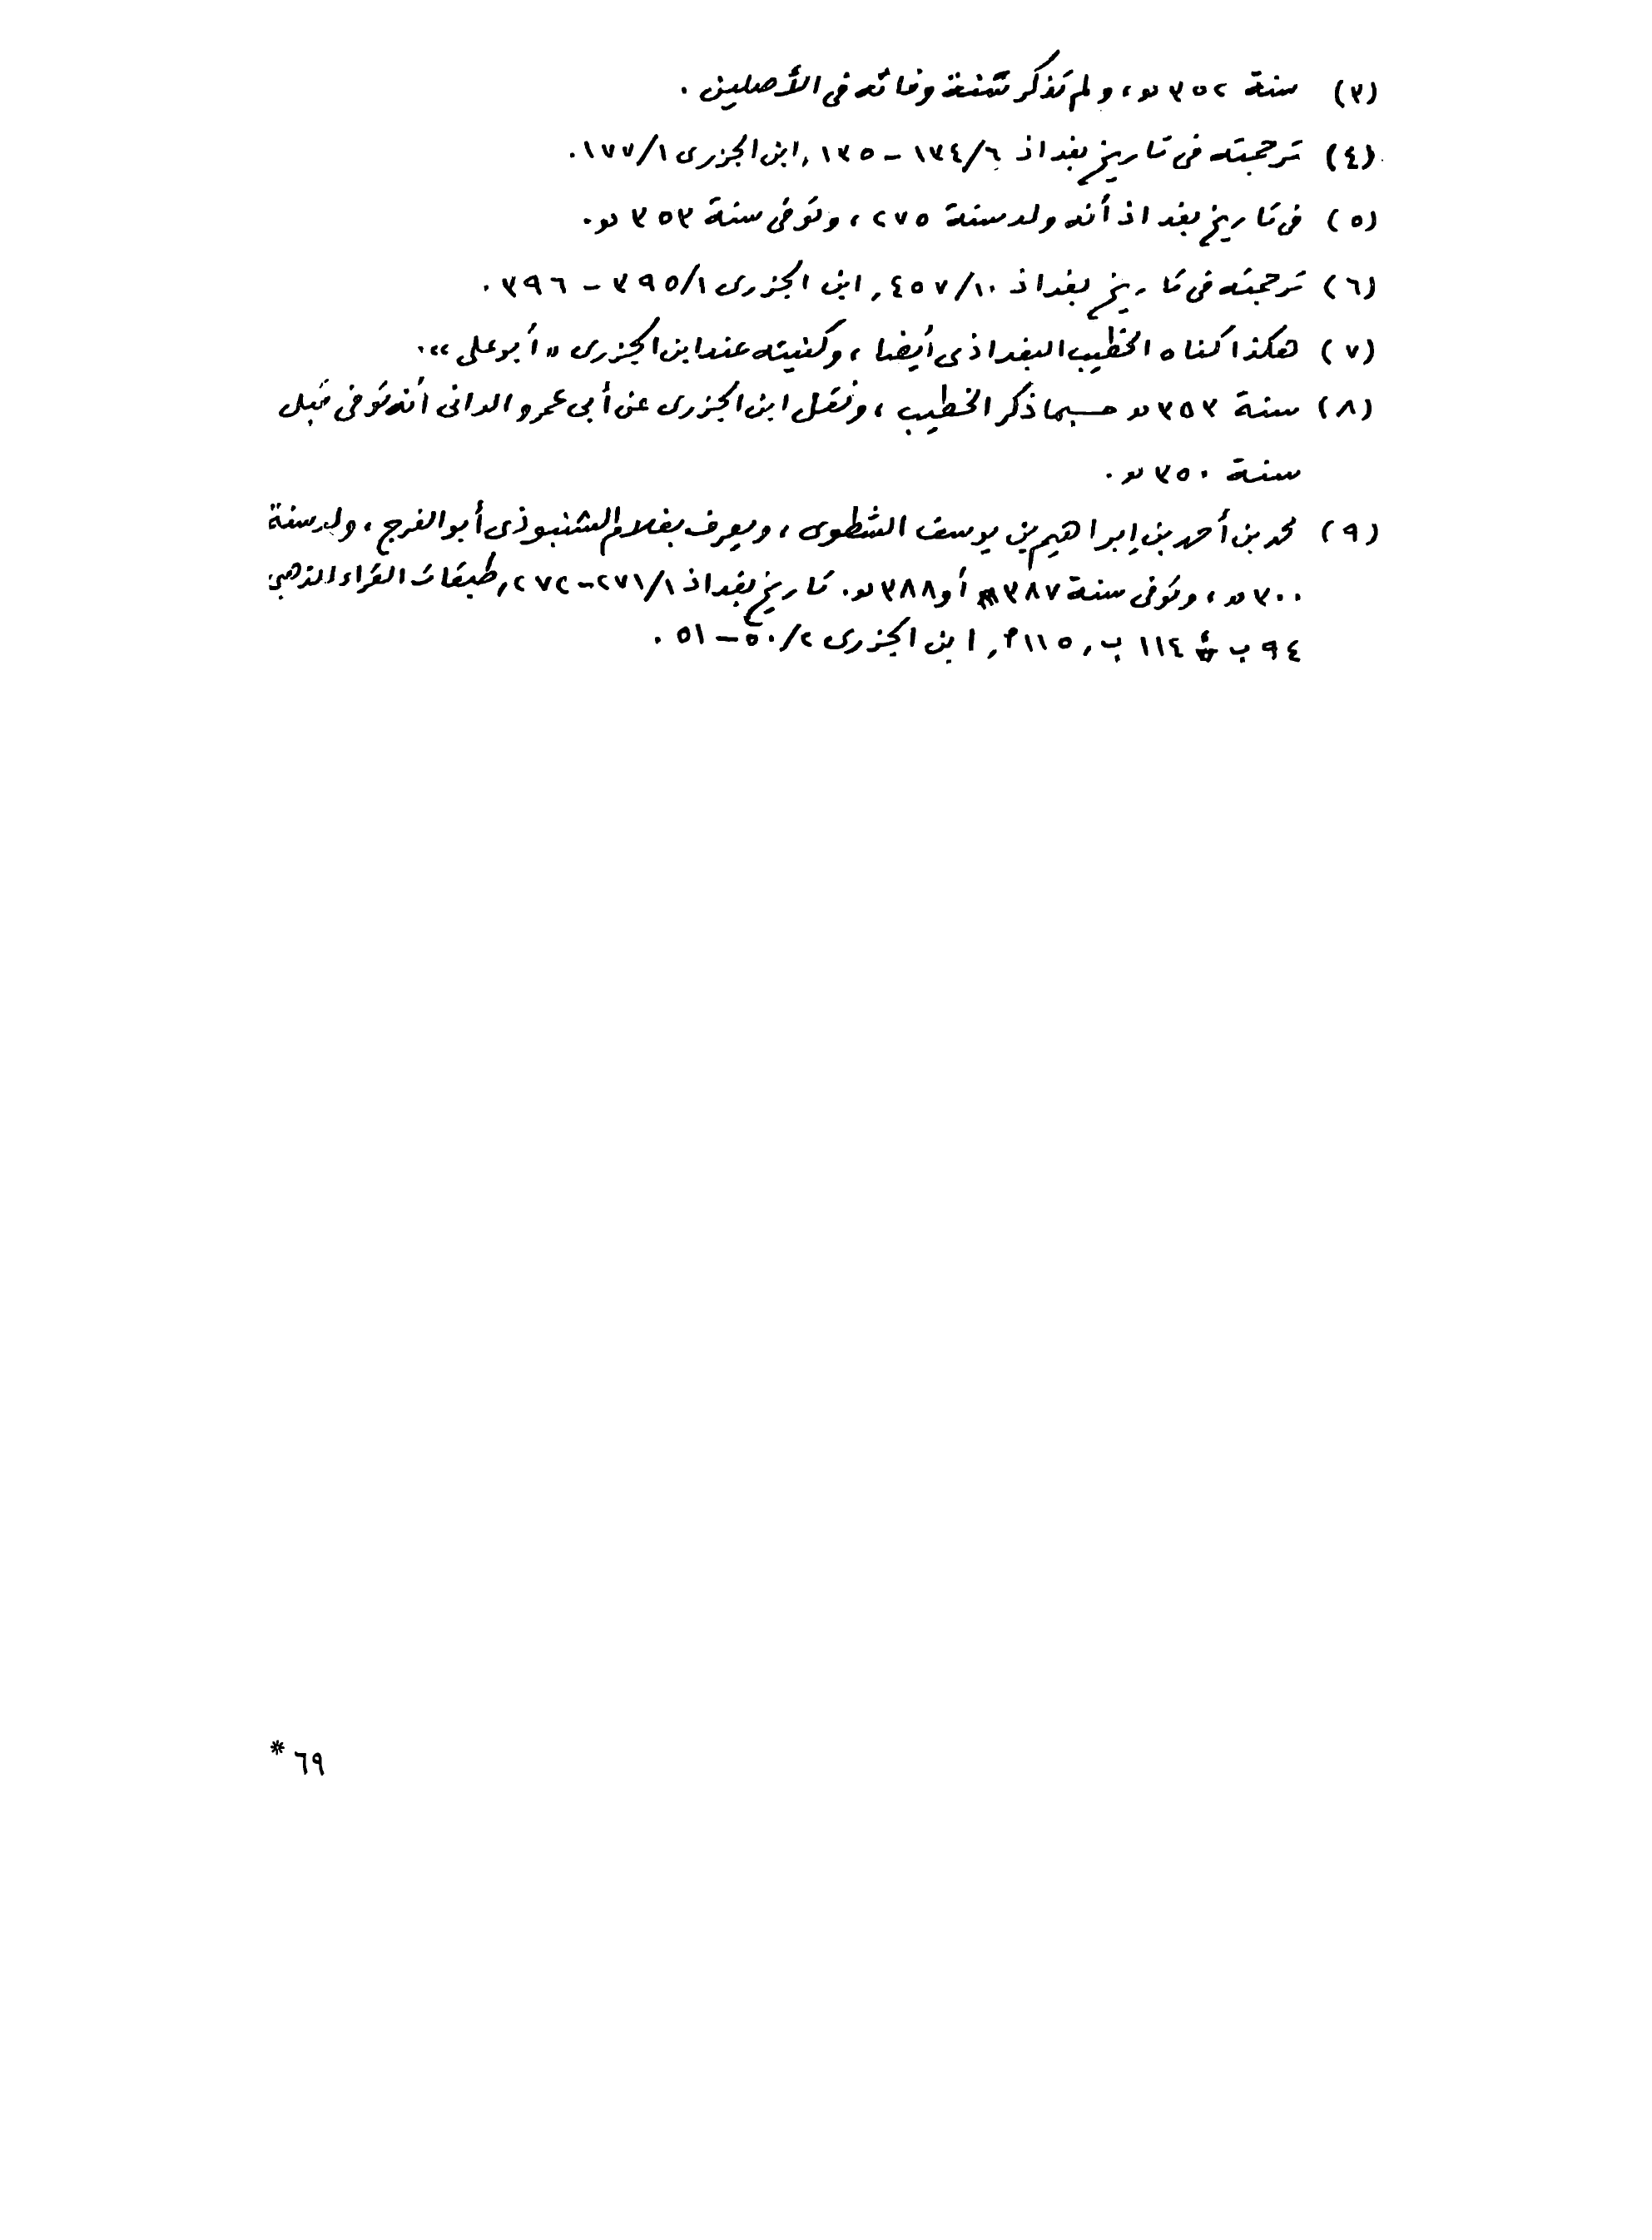 (٣) سنة ٣٥٢ هـ، ولم تذكر سنة وفاته فى الأصلين .
(٤) ترجمته فى تاريخ بغداذ ٦/١٣٤ - ١٣٥, ابن الجزرى ١/١٧٧.
(٥) فى تاريخ بغداذ أنه ولد سنة ٢٧٥ ، وتوفى سنة ٣٥٣ هـ.
(٦) ترجمته فى تاريخ بغداذ ١٠/٤٥٧, ابن الجزرى ١/٣٩٥ - ٣٩٦ .
(٧) هكذا كناه الخطيب البغداذى أيضا ، وكنيته عند ابن الجزرى « أبو على ».
(٨) سنة ٣٥٣ هـ حسبما ذكر الخطيب ، ونقل ابن الجزرى عن أبى عمرو الدانى أنه توفى قبل
سنة ٣٥٠ هـ .
(٩) محمد بن أحمد بن إبراهيم بن يوسف الشطوى ، ويعرف بغلام الشنبوذى أبو الفرج ، ولد سنة
٣٠٠ هـ ، وتوفى سنة ٣٨٧ أو ٣٨٨ هـ. تاريخ بغداذ ١/٢٧١-٢٧٢, طبقات القراء الذهبى
٩٤ ب ١١٤ ب, ١١٥ م, ابن الجزرى ٢/٥٠ - ٥١ .
٦٩ *